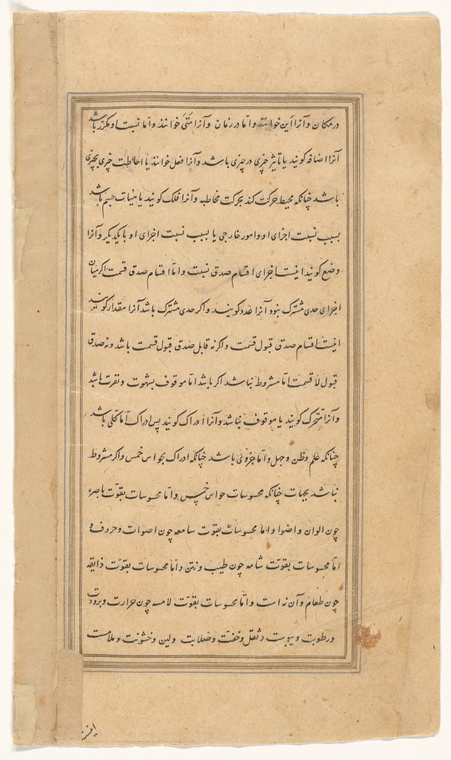 در مکان و آنرا این خوانند و اما در زمان و آنرا متی خوانند و اما نسبت او مکرر باشد
آنرا اضافه کویند یا تاثیر چیزی در چیزی باشد و آنرا فعل خوانند یا احاطت چیزی بچیزی
باشد چنانکه محیط حرکت کند بحرکت محاط به و آنرا ملک کویند یا هیات جسم باشد
بسبب نسبت اجزای او و امور خارجی یا بسبب نسبت اجزای او با یکدیکر و آنرا
وضع کویند اینست اجزای اقسام صدق نسبت و اما اقسام صدق قسمت اکر میان
اجزای حدی مشترک نبود آنرا عدد کویند و اکر حدی مشترک باشد آنرا مقدار کویند
اینست اقسام صدق قبول قسمت و اکر نه قابل صدق قبول قسمت باشد و نه صدق
قبول لا قسمت اما مشروط نباشد اکر باشد اما موقوف بشهوت و نفرت باشد
و آنرا تحرک کویند یا موقوف نباشد و آنرا ادراک کویند پس ادراک اما کلی باشد
چنانکه علم و ظن و جهل و اما جزوی باشد چنانکه ادراک بحواس خمس و اکر مشروط
نباشد بحیات چنانکه محسوسات حواس خمس و اما محسوسات بقوت باصره
چون الوان و اضوا و اما محسوسات بقوت سامعه چون اصوات و حروف و
اما محسوسات بقوت شامه چون طیب و نتن و اما محسوسات بقوت ذایقه
چون طعام و آن نه است و اما محسوسات بقوت لامسه چون حرارت و برودت
و رطوبت و یبوست و ثقل و خفت و صلابت و لین و خشونت و ملاست